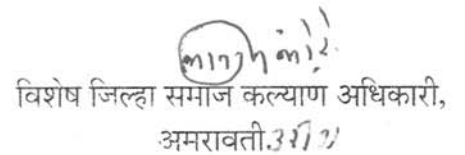 विशेष जिल्हा समाज कल्याण अधिकारी,
अमरावती.